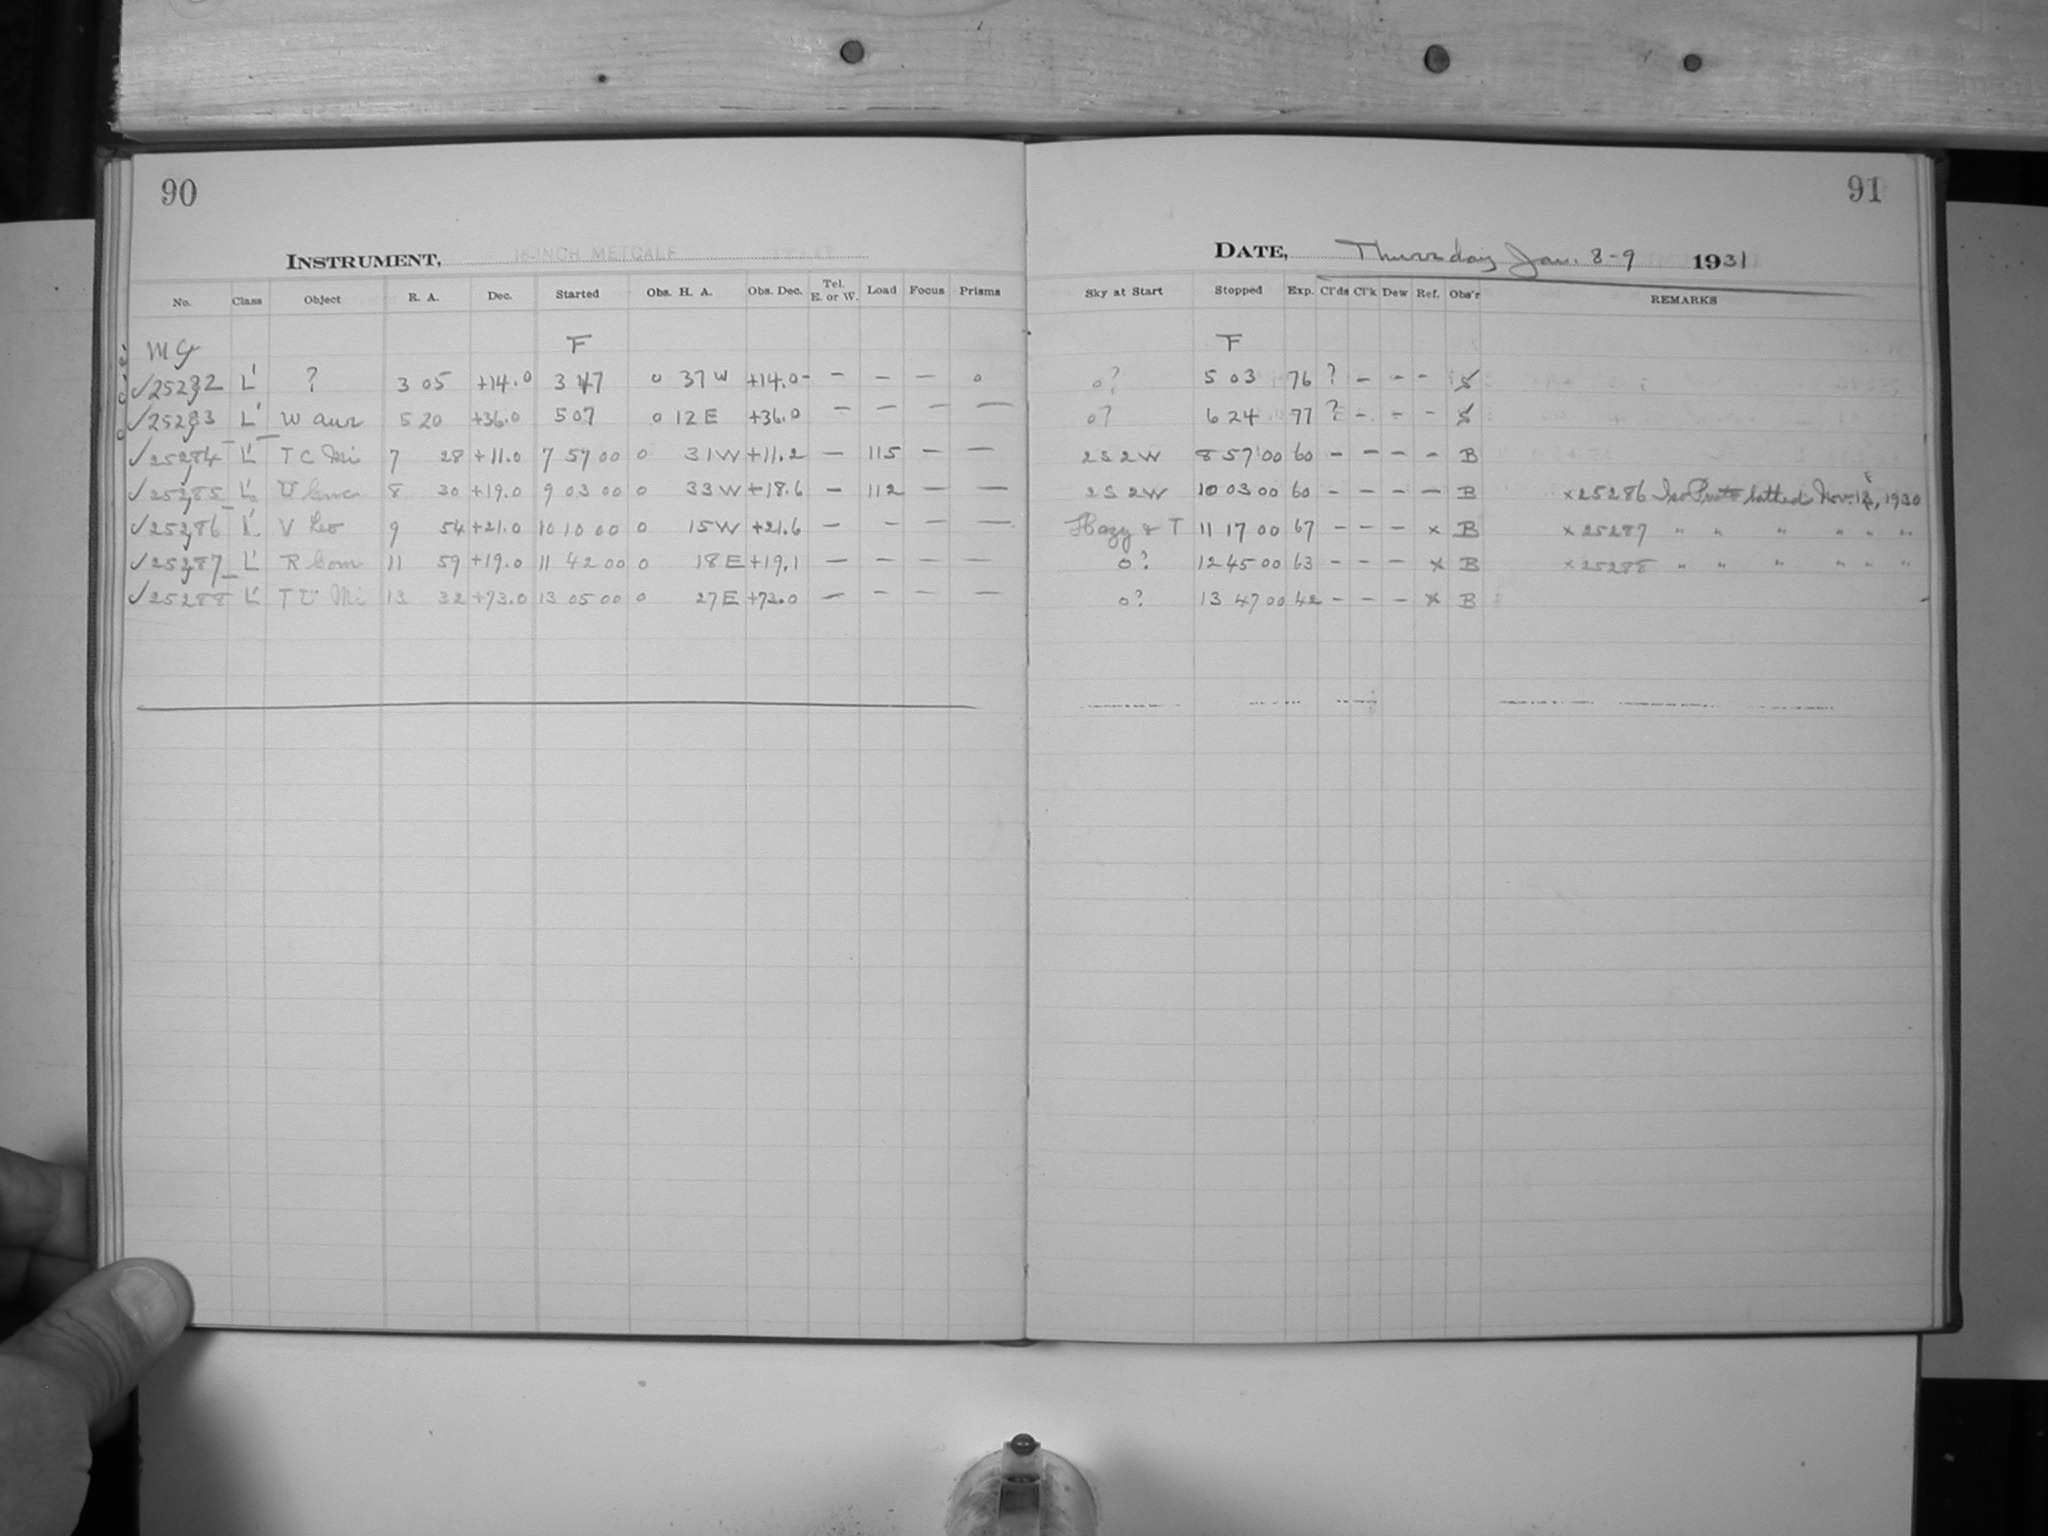 90
INSTRUMENT, 16-INCH METCALF
No. Class Object R. A. Dec. Started Obs. H. A. Obs. Dec. Tel. E. or W. Load Focus Prisms
F
✓25282 L' ? 3 05 +14.0 3 47 0 37 W +14.0 - - - - 0
✓25283 L' W Aur 5 20 +36.0 5 07 0 12 E +36.0 - - - -
✓25284 L' T C Mi 7 28 +11.0 7 57 00 0 31 W +11.2 - 115 - -
✓25285 U Canc 8 30 +19.0 9 03 00 0 33 W +18.6 - 112 - -
✓25286 L' V Leo 9 54 +21.0 10 10 00 0 15 W +21.6 - - - -
✓25287 L' R Com 11 59 +19.0 11 42 00 0 18 E +19.1 - - - -
✓25288 L' T U Mi 13 32 +73.0 13 05 00 0 27 E +73.0 - - - -
91
DATE, Thursday Jan. 8-9 1931
Sky at Start Stopped Exp. Cl'ds Cl'k Dew Ref. Obs'r REMARKS
F
0? 5 03 76 ? - - -
0? 6 24 77 ? - - -
2 S 2 W 8 57 00 60 - - - - B
2 S 2 W 10 03 00 60 - - - - B x 25286 Iso Nov. 1930
Hazy & T 11 17 00 67 - - - x B x 25287 " " " " " "
0? 12 45 00 63 - - - x B x 25288 " " " " " "
0? 13 47 00 42 - - - x B